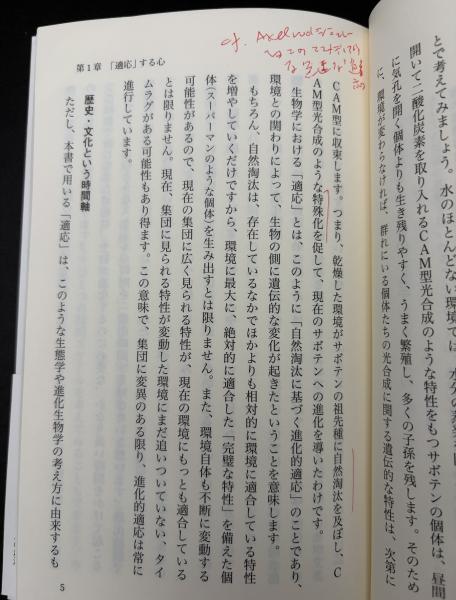 とで考えてみましょう。水のほとんどない環境では、水分の蒸発を
開いて二酸化炭素を取り入れるCAM型光合成のような特性をもつサボテンの個体は、昼間
に気孔を開く個体よりも生き残りやすく、うまく繁殖し、多くの子孫を残します。そのため
に、環境が変わらなければ、群れにいる個体たちの光合成に関する遺伝的な特性は、次第に
cf. Axelrod
第1章 「適応」する心
CAM型に収束します。つまり、乾燥した環境がサボテンの祖先種に自然淘汰を及ぼし、C
AM型光合成のような特殊化を促して、現在のサボテンへの進化を導いたわけです。
生物学における「適応」とは、このように「自然淘汰に基づく進化的適応」のことであり、
環境との関わりによって、生物の側に遺伝的な変化が起きたということを意味します。
もちろん、自然淘汰は、存在しているなかでほかよりも相対的に環境に適合している特性
を増やしていくだけですから、環境に最大に、絶対的に適合した「完璧な特性」を備えた個
体(スーパーマンのような個体)を生み出すとは限りません。また、環境自体も不断に変動する
可能性があるので、現在の集団に広く見られる特性が、現在の環境にもっとも適合している
とは限りません。現在、集団に見られる特性が変動した環境にまだ追いついていない、タイ
ムラグがある可能性もあり得ます。この意味で、集団に変異のある限り、進化的適応は常に
進行しています。
歴史・文化という時間軸
ただし、本書で用いる「適応」は、このような生態学や進化生物学の考え方に由来するも
5